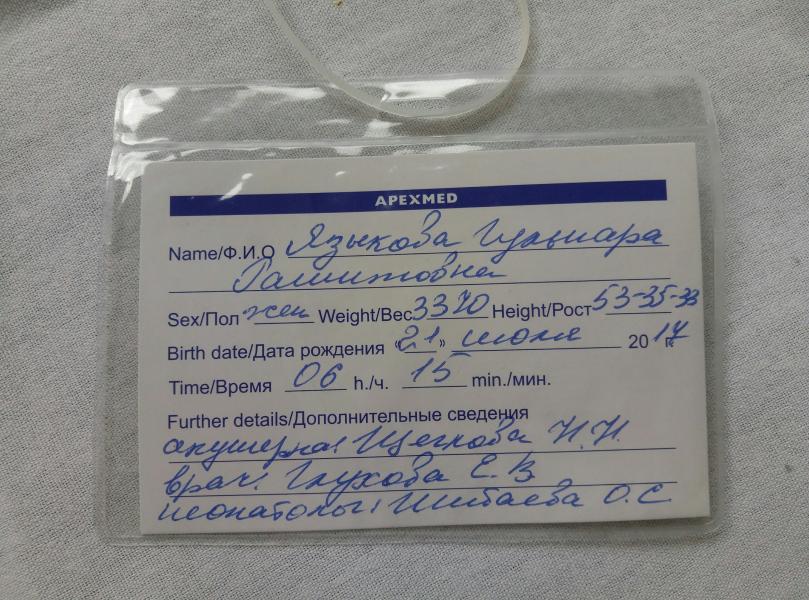 APEXMED
Name/Ф.И.О Языкова Гульнара
Рашитовна
Sex/Пол жен Weight/Вес 3370 Height/Рост 53-35-33
Birth date/Дата рождения «21» июня 2017 г.
Time/Время 06 h./ч. 15 min./мин.
Further details/Дополнительные сведения
акушерка: Щеглова Н.Н.
врач: Глухова Е.В
неонатолог: Шибаева О.С.